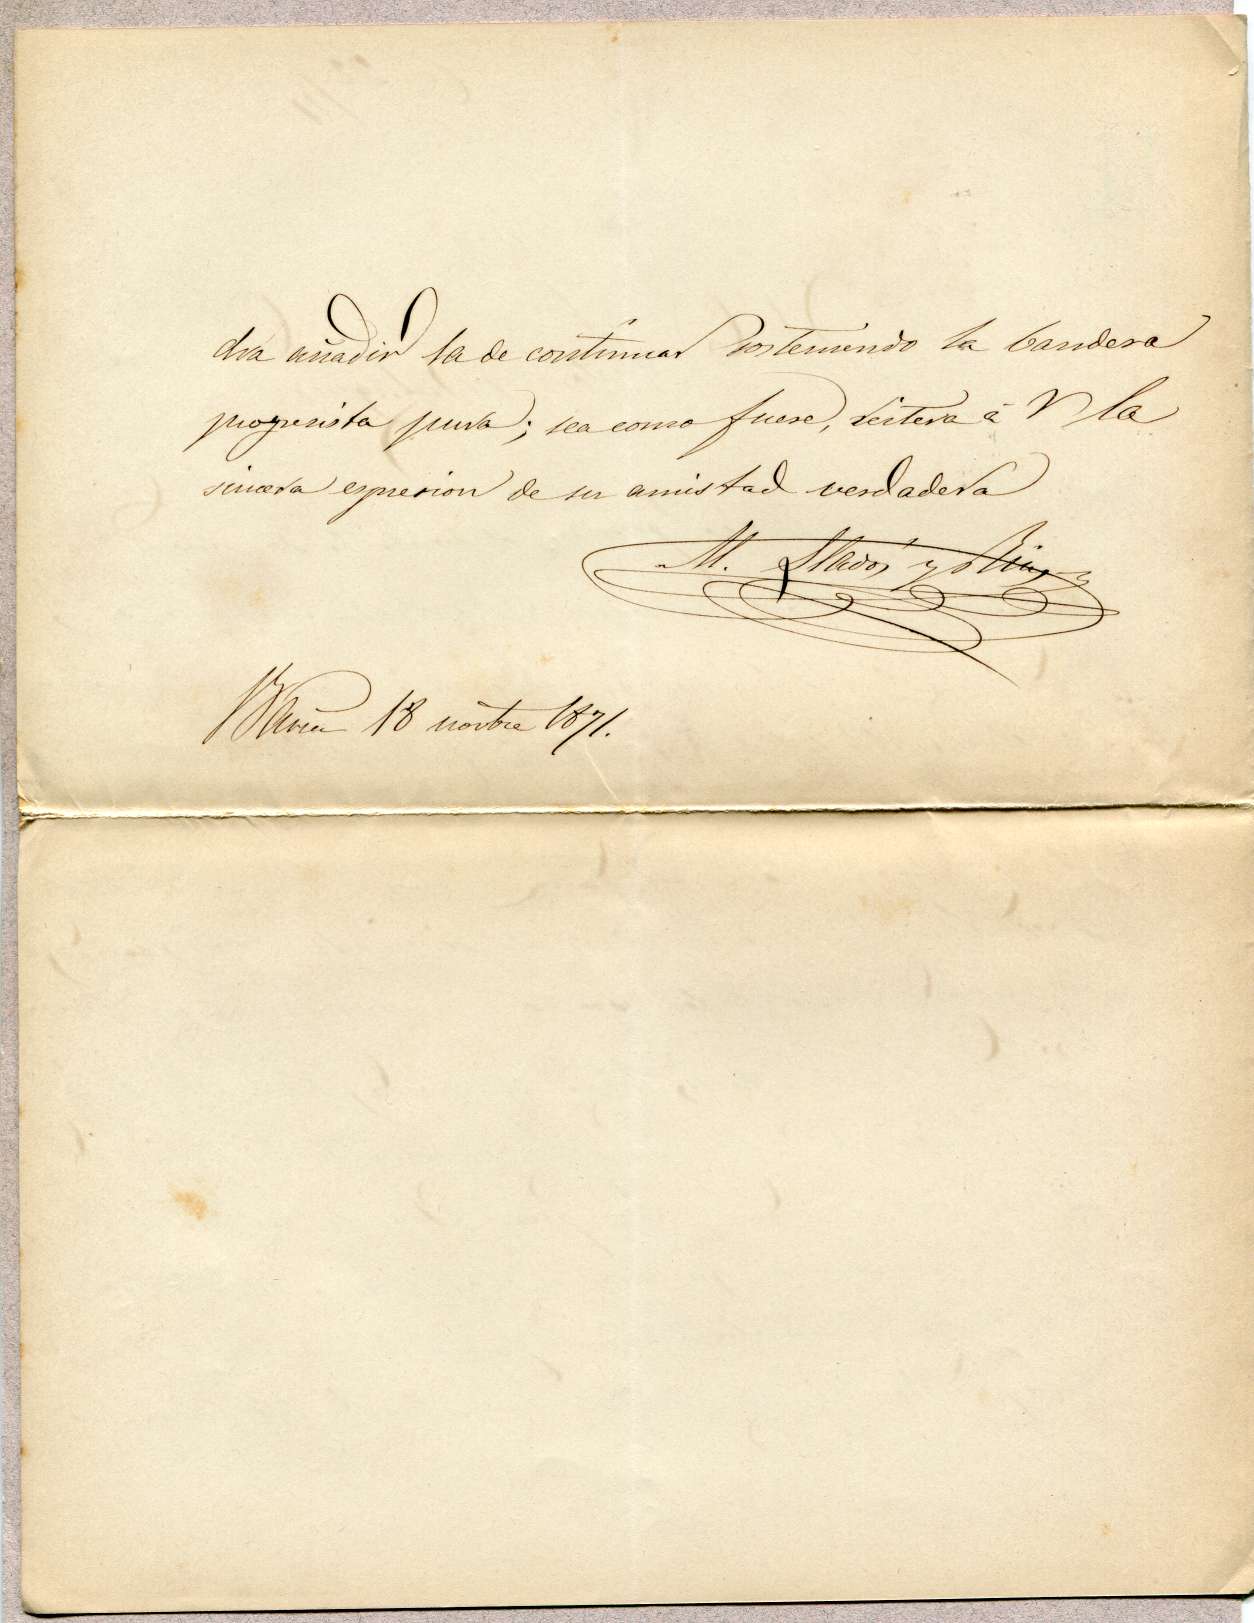 dra añadir la de continuar sosteniendo la bandera
progresista pura; sea como fuere, reitera á V la
sincera espresion de su amistad verdadera
M. Lladós y Rius
Barna 18 novbre 1871.